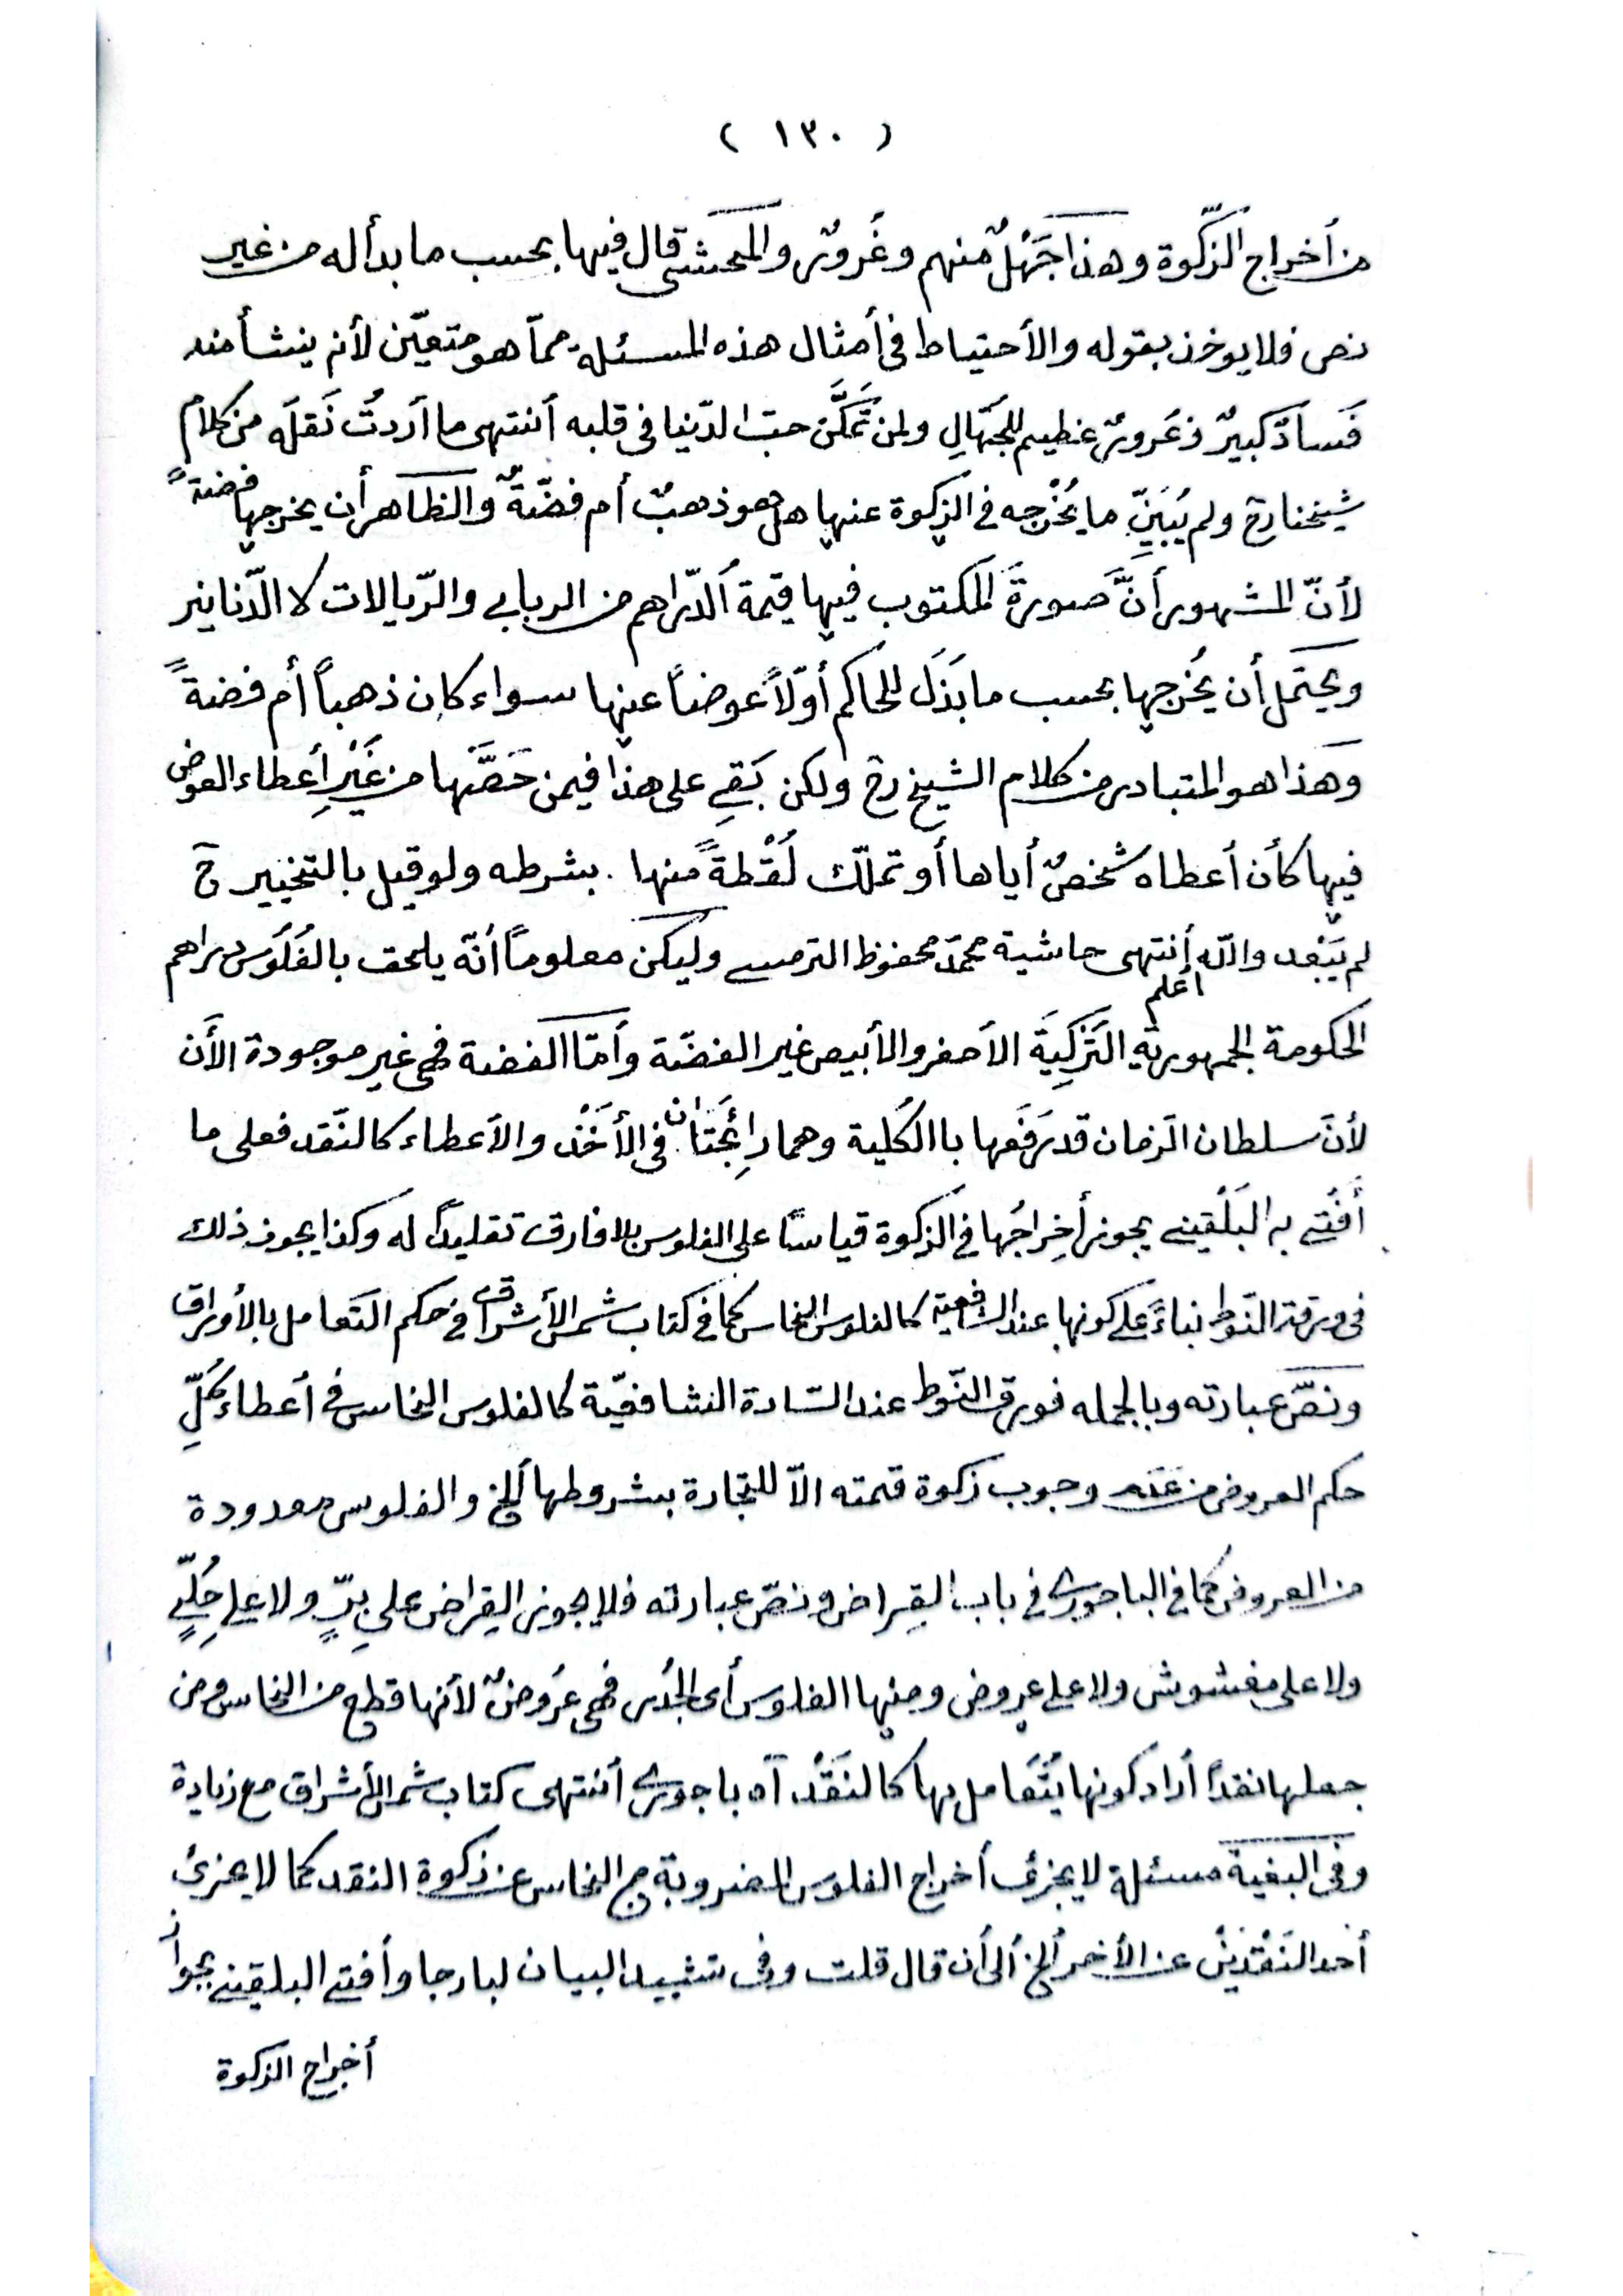 ( ١٣٠ )
من أخراج الزّكوة وهذا جَهْلٌ منهم وغُرورٌ والمحشي قال فيها بحسب ما بدأ له من غير
نص فلا يوخذ بقوله والأحتياط في أمثال هذه المسئلة مماّ هو متعيّن لأنه ينشأ منه
فَسادٌ كبيرٌ وغُرورٌ عظيم للجُهّالِ ولمن تَمَكَّنَ حبّ الدّنيا في قلبه أنتهى ما أردتُ نَقلَه من كلام
شيخنا رح ولم يُبَيِّن ما يُخْرجه في الزكوة عنها هل هو ذهبٌ أم فضّةٌ والظاهر أن يخرجها فضةً
لأنّ المشهور أنَّ صورةَ المكتوب فيها قيمة الدّراهم من الربابي والرّيالات لا الدّنانير
ويحتمل أن يُخرجها بحسب ما بَذَلَ للحاكم أوّلاً عوضاً عنها سواء كان ذهباً أم فضةً
وهَذا هو المتبادر من كلام الشيخ رح ولكن بَقِي على هذا فيمن حَصَّلها من غَيْرِ أعطاء العوض
فيها كأن أعطاه شخصٌ أياها أو تملّك لُقْطةً منها . بشرطه ولو قيل بالتخيير ح
لم يَبْعد والله أعلم أنتهى حاشية محمّد محفوظ الترمسي وليكن معلوماً أنّه يلحق بالفُلُوس دراهم
الحكومة الجمهورية التَركِيَة الأصفر والأبيض غير الفضّة وأمّا الفضة فهي غير موجودة الأَن
لأنَ سلطان الزمان قد رَفَعها باالكلية وهما رائِجَتان في الأَخْذ والأعطاء كالنّقد فعلى ما
أَفْتي به البَلْقيني يجوز أخراجُها في الزكوة قياساً على الفلوس بلا فارق تقليداً له وكذا يجوز ذلك
في ورقة النّوط بناءً على كونها عند الشافعية كالفلوس النحاس كما في كتاب شمس الأشراق في حكم التعامل بالأوراق
ونصّ عبارته وبالجمله فورق النّوط عند السّادة الشافعيّة كالفلوس النحاس في أعطاء كُلِّ
حكم العروض من عَدَم وجوب زكوة قيمته الاّ للتجارة بشروطها ألخ والفلوس معدودة
من العروض كما في الباجوري في باب القِراض ونصّ عبارته فلا يجوز القِراض على بِرٍّ ولا على حُلِيٍّ
ولا على مغشوش ولا على عروض ومنها الفلوس أى الجُدُد فهي عُروضٌ لأنها قطع من النحاس ومن
جعلها نقداً أراد كونها يُتَعامل بها كالنَقْد. آه باجوري أنتهى كتاب شمس الأشراق مع زيادة
وفي البغية مسئلة لا يجزئ أخراج الفلوس المضروبة من النحاس عن زكوة النقد كما لا يجزئ
أحد النَقْدَيْن عن الأخر ألخ ألى أن قال قلت وفي تشييد البيان لبارجا وأفتي البلقيني بجواز
أخراج الزكوة